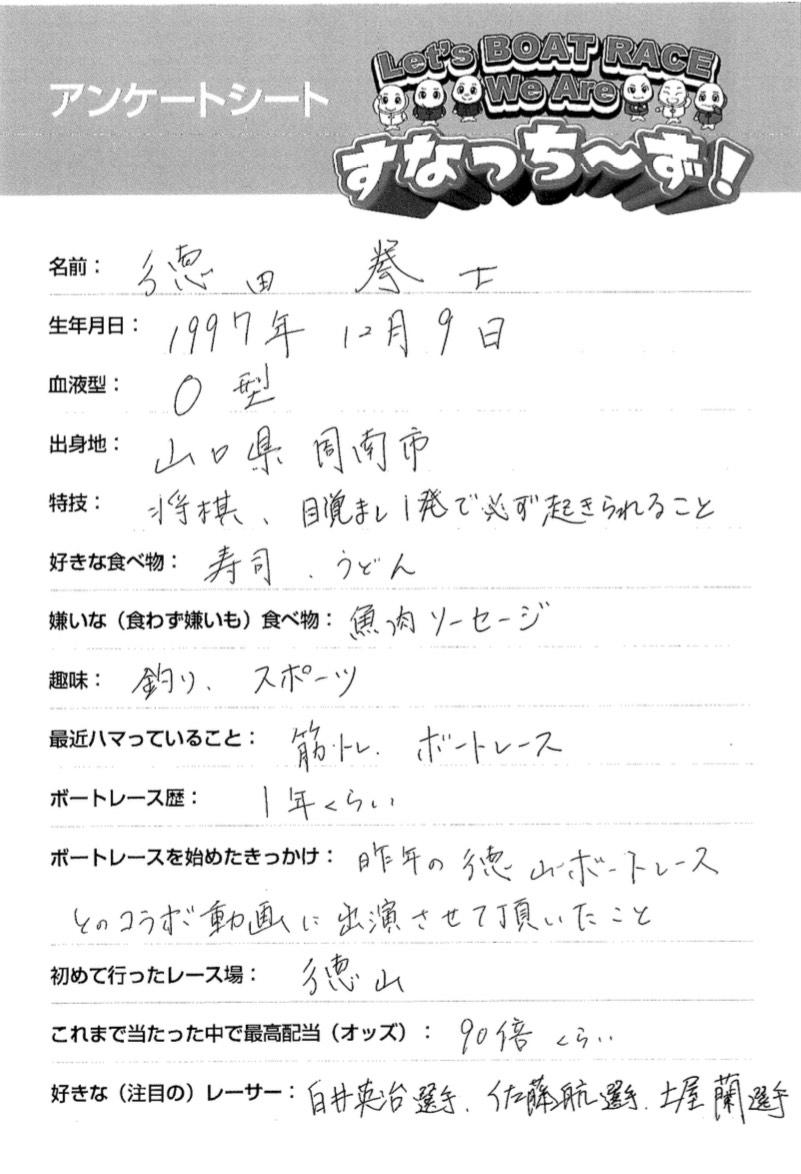 アンケートシート
Let's BOAT RACE
We Are
すなっち〜ず!
名前： 徳田 拳士
生年月日： 1997年 12月 9日
血液型： O型
出身地： 山口県 周南市
特技： 将棋、目覚まし1発で必ず起きられること
好きな食べ物： 寿司、うどん
嫌いな（食わず嫌いも）食べ物： 魚肉ソーセージ
趣味： 釣り、スポーツ
最近ハマっていること： 筋トレ、ボートレース
ボートレース歴： 1年くらい
ボートレースを始めたきっかけ： 昨年の徳山ボートレース
とのコラボ動画に出演させて頂いたこと
初めて行ったレース場： 徳山
これまで当たった中で最高配当（オッズ）： 90倍くらい
好きな（注目の）レーサー： 白井英治選手、佐藤航選手、土屋蘭選手